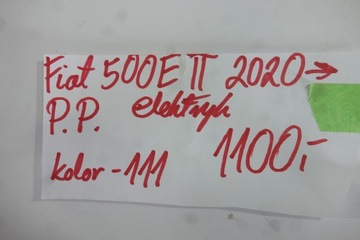 Fiat 500E II 2020→
P.P. elektryk
1100,-
kolor - 111